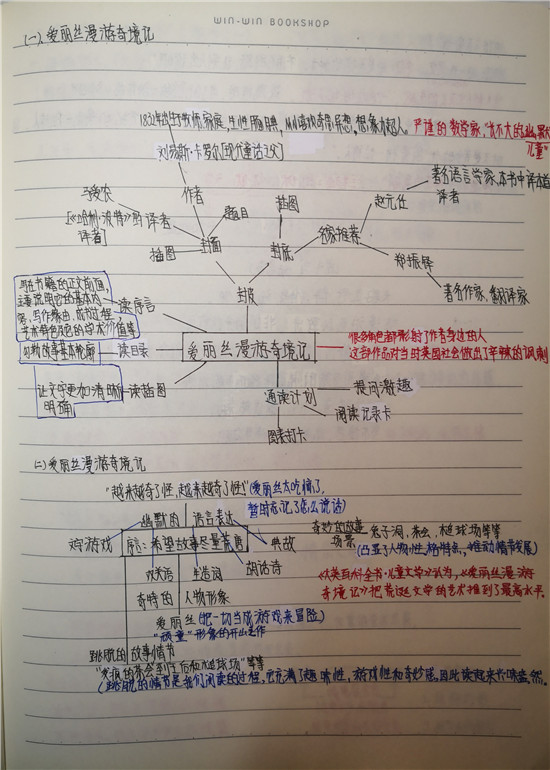 WIN-WIN BOOKSHOP
(一)、爱丽丝漫游奇境记
1832年出生于牧师家庭,生性腼腆,
想象力超人。
严谨的数学家,"长不大的
儿童"
刘易斯·卡罗尔[现代童话之父]
著名语言学家,本书中译本首
译者
马爱农
[《哈利·波特》的译者
译者]
作者
题目
插图
赵元任
插图
封面
封底
名家推荐
郑振铎
封皮
著名作家,翻译家
写在书籍的正文前面,
主要说明它的基本内
容,写作缘由,成书过程,
艺术特色及它的学术价值等
读序言
勾勒故事基本轮廓
读目录
爱丽丝漫游奇境记
很多角色都影射了作者身边的人
这部作品对当时英国社会做出了辛辣的讽刺
让文字更加清晰
明确
读插图
通读计划
提问激趣
阅读记录卡
图表打卡
(二)爱丽丝漫游奇境记
"越来越奇了怪,越来越奇了怪!"(爱丽丝太吃惊了,
暂时忘记了怎么说话)
幽默的
语言表达
奇妙的故事
场景
兔子洞、茶会、槌球场等等
(凸显了人物性格特点,推动情节发展)
文字游戏
序言:希望故事尽量荒唐
典故
双关语
生造词
胡话诗
《大英百科全书·儿童文学》认为,《爱丽丝漫游
奇境记》把荒诞文学的艺术推到了最高水平。
奇特的
人物形象
爱丽丝(把一切当成游戏来冒险)
"顽童"形象的开山之作
跳脱的故事情节
"发疯的茶会到王后和槌球场"等等
(跳脱的情节是我们阅读的过程,它充满了趣味性,游戏性和奇妙感,因此读起来兴味盎然。